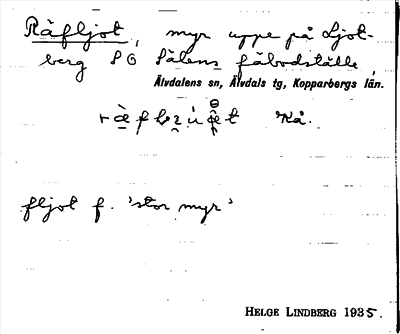 Råfljot, myr uppe på Ljot-
berg SO Sälens fäbodställe,
Älvdalens sn, Älvdals tg, Kopparbergs län.
Kå.
fljot f. 'stor myr'
HELGE LINDBERG 1935.